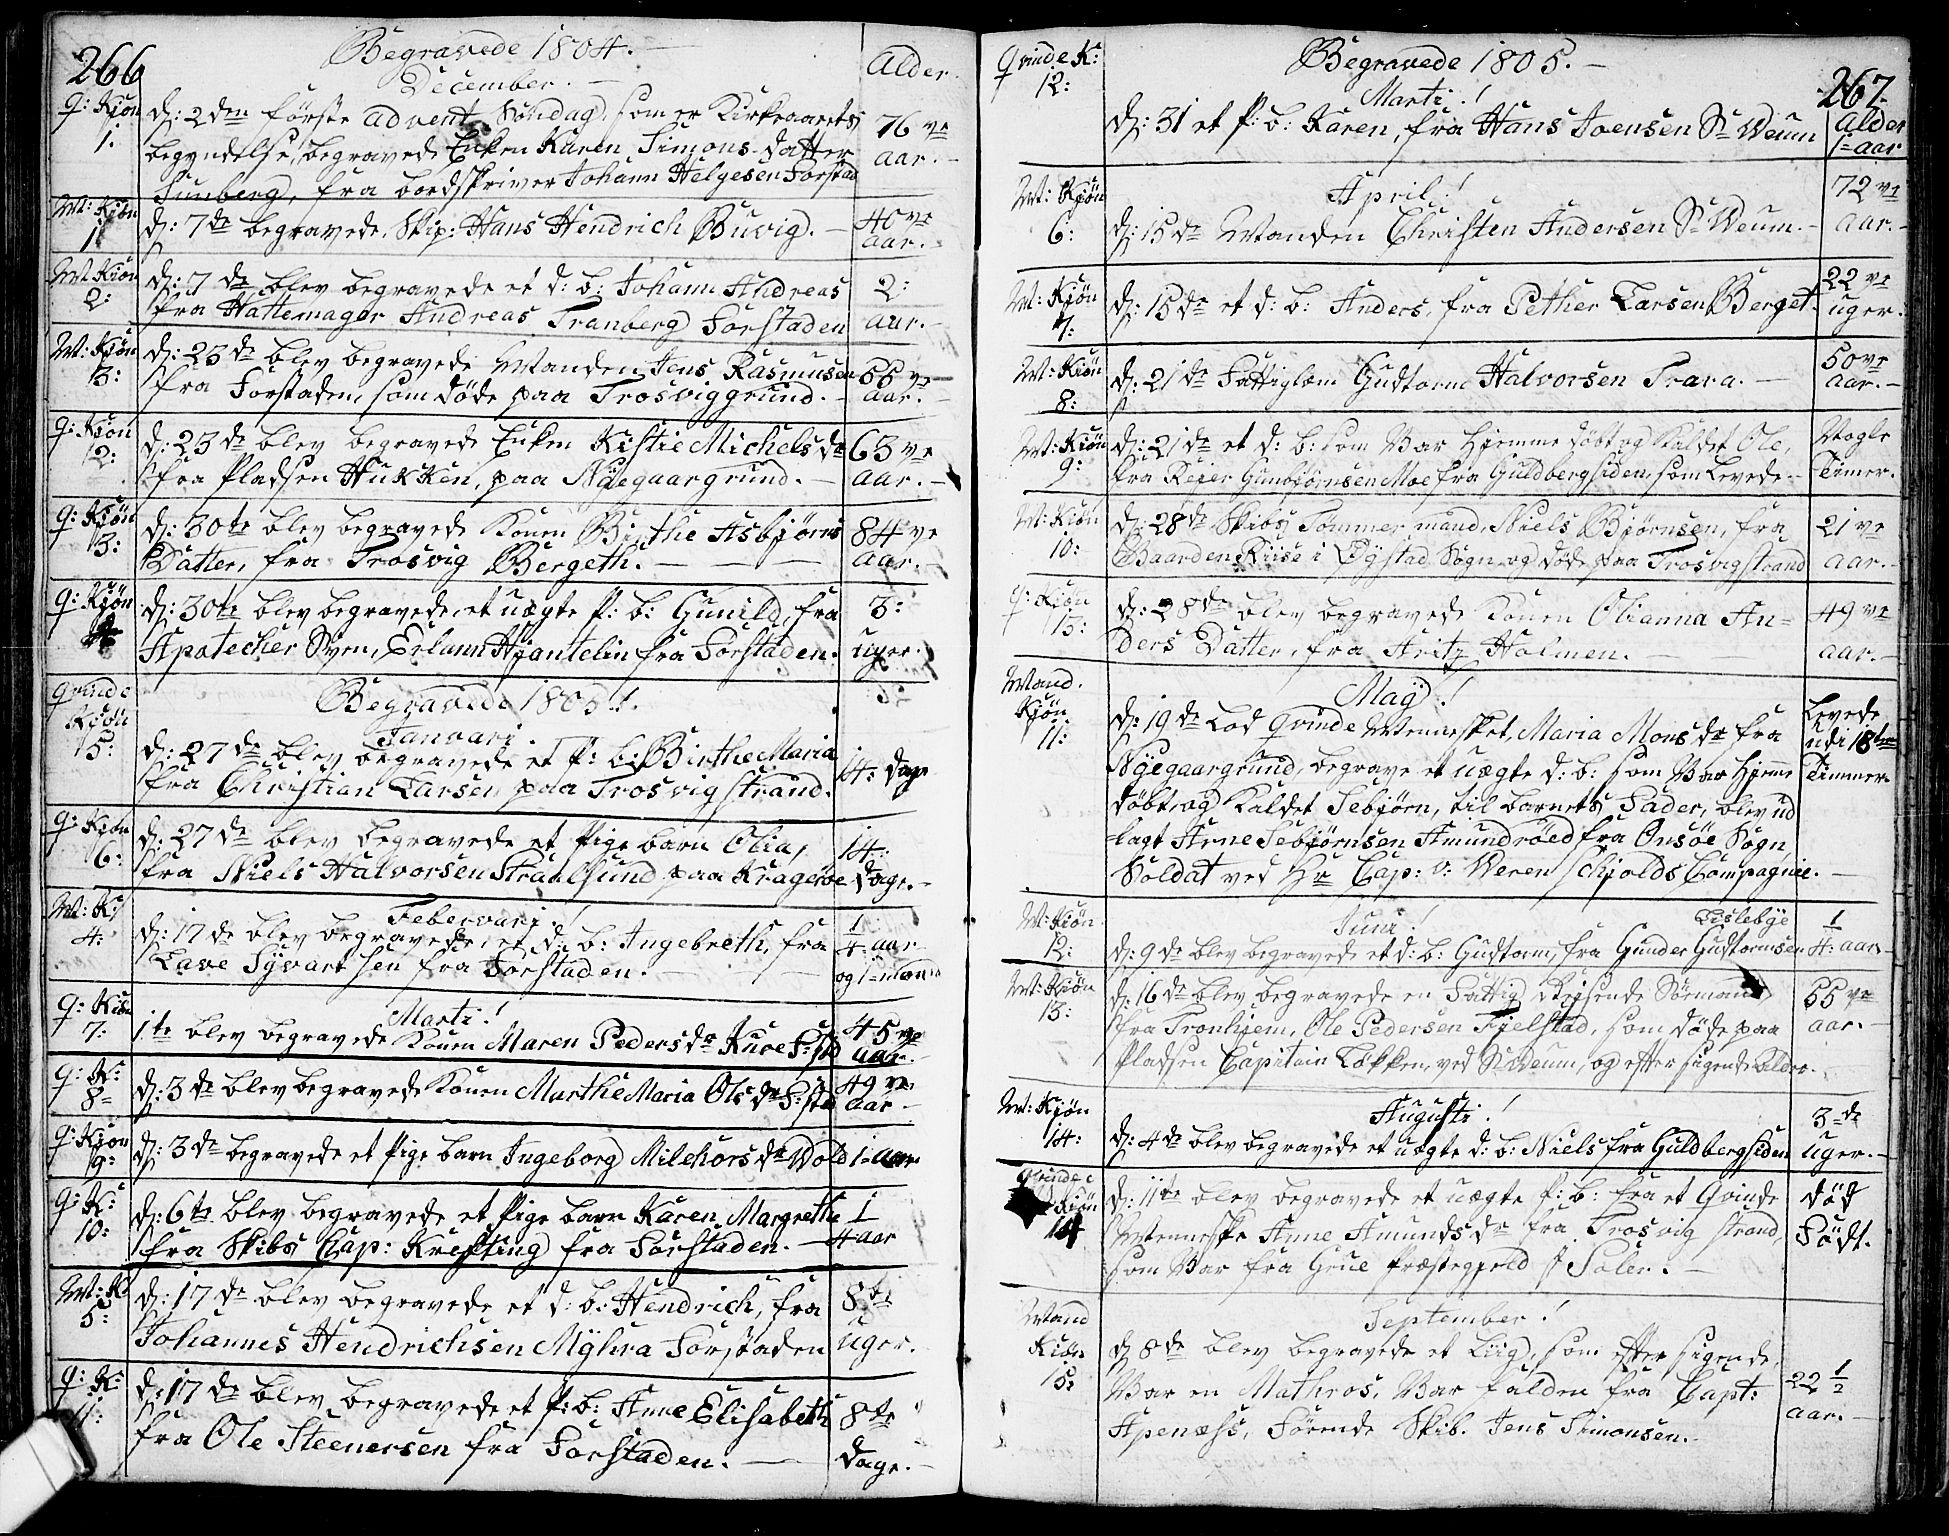 266
Begravede 1804.
December.
Alder.
q: Kiøn
1.
d: 2den første advent Søndag, som er Kirkeaarets
begyndelse, begravede Enken Karen Simons datter
Sunberg, fra bordskriver Johann Helgesen Forstad
76ve
aar.
M: Kiøn
1
d: 7de begravede Skip: Hans Hendrich Buvig.
40ve
aar.
M: Kiøn
2:
d: 7de blev begravede et d: b: Johann Andreas
fra Hattemager Andreas Tranberg Forstaden
2:
aar.
M: Kjøn
3:
d: 23de blev begravede Manden Jens Rasmusen
fra Forstaden, som døde paa Trosviggrund.
55ve
aar.
q: Kiøn
2:
d: 23de blev begravede Enken Kistie Michels dr
fra Pladsen Hukken, paa Nøegaargrund.
63ve
aar.
q: Kjøn
3:
d: 30te blev begravede Konen Birthe Asbjørns
Datter, fra Trosvig Bergeth.
84ve
aar.
q: Kjøn
4
d: 30te blev begravede, et uægte p: b: Gunild, fra
Apotecher Sven, Erlann Hjantelin fra Forstaden.
3:
uger.
Begravede 1805!
Januari.
qvinde
Kjøn
5:
d: 27de blev begravede et p: b: Birthe Maria
fra Christian Larsen paa Trosvigstrand.
14: dage
q: Kjøn
6:
d: 27de blev begravede et Pige barn Olia,
fra Niels Halvorsen Straalsund paa Kragerøe
14:
dage.
Feberuari!
M: K:
4:
d: 17de blev begravede, et d: b: Ingebreth, fra
Lave Syvartsen fra Forstaden.
1/4 aar
og 1 maaned
Marti!
q: Kiøn
7:
1te blev begravede Konen Maren Peders dr Kure F: sta
45ve
aar.
q: K:
8
d: 3de blev begravede Konen Marthe Maria Ols dr F: sta
49ve
aar
q: Kiøn
9:
d: 3de begravede et Pige barn Ingeborg Milchors dr Wold
1 aar
q: K:
10:
d: 6te blev begravede et Pige barn Karen Margrethe
fra Skibs Cap: Krefting fra Forstaden.
1/4 aar
M: K
5:
d: 17de blev begravede et d: b: Hendrich, fra
Johannes Hendrichsen Myhra Forstaden
8te
uger.
q: K:
11:
d: 17de blev begravede et p: b: Anne Elisabeth
fra Ole Steenersen fra Forstaden.
8te
dage.
267.
Begravede 1805.
Marti!
Alder
qvinde K:
12:
d: 31 et p: b: Karen, fra Hans Joensen Sr Weum
1 aar
April!
M: Kjøn
6:
d: 15de Manden Christen Andersen Sr Weum.
72ve
aar.
M: Kjøn
7:
d: 15de et d: b: Anders, fra Pether Larsen Berget.
22ve
uger.
M: Kiøn
8:
d: 21de Fattiglem Gudtorm Halvorsen Trara.
50ve
aar.
M: Kiøn
9:
d: 21de et d: b: som Var Hjemme døbt og Kaldet Ole,
fra Reier Gunbjørnsen Moe fra Guldbergsiden, som Levede
Nogle
Timer.
M: Kiøn
10:
d: 28de Skibs Tømmermand, Niels Bjørnsen, fra
Gaarden Riise i Øystad Sogn, og døde paa Trosvigstrand
21ve
aar.
q: Kiøn
13:
d: 28de blev begravede Konen Olianna An=
ders Datter, fra Fritz Holmen.
49ve
aar.
May!
Mand.
Kjøn
11:
d: 19de Lod Qvinde Mennesket, Maria Mons dr fra
Nøegaargrund, begrave et uægte d: b: som Var Hjemme
døbt, og Kaldet Sebjørn, til barnets Fader, blev ud
lagt Arne Sebjørnsen Amundrøed fra Onsøe Sogn,
Soldat ved Hr Cap: v: Weren Schjolds Compagnie.
Levede
udi 18ten
Timmer
Juni!
M: Kiøn
12:
Lislebye
d: 9de blev begravede et d: b: Gudtorm, fra Gunder Gudtormsen
1/4 aar
M: Kiøn
13:
d: 16de blev begravede en Fattig Reisende Sømand,
fra Tronhjem, Ole Pedersen Fjelstad, som døde paa
Pladsen Capitain Løkken, ved Sr Weum, og efter sigende alder.
55ve
aar.
Augusti!
M: Kjøn
14:
d: 4de blev begravede et uægte d: b: Niels fra Guldbergsiden
3de
uger.
qvinde
Kiøn
14
d: 11te blev begravede et uægte p: b: fra et Qvinde
Menneske Anne Amunds dr fra Trosvig strand,
som Var fra Grue Præstegjeld i Soler.
død
Født.
September!
Mand
Kiøn
15:
d 8de blev begravede et Liig, som efter sigende,
Var en Mathros, Var falden fra Capt:
Apenæss, Førende Skib. Jens Simonsen.
22 1/2
aar.